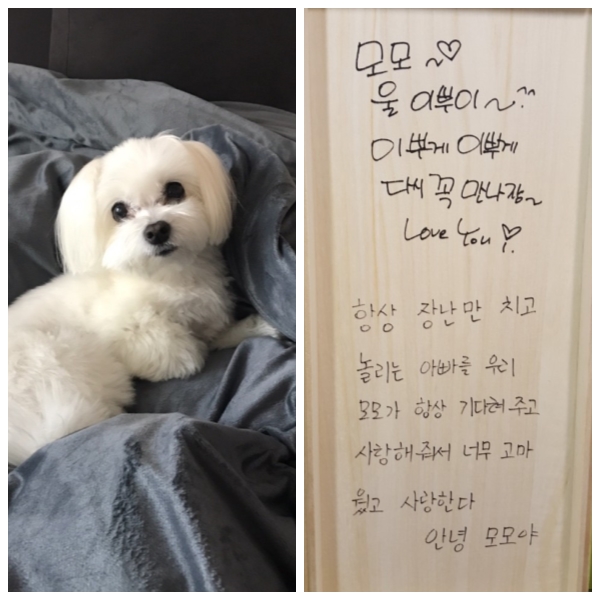 모모 ~♡
울 이쁘이~^^
이쁘게 이쁘게
다시 꼭 만나쟝~
Love You ♡
항상 장난만 치고
놀리는 아빠를 우리
모모가 항상 기다려 주고
사랑해줘서 너무 고마
웠고 사랑한다
안녕 모모야